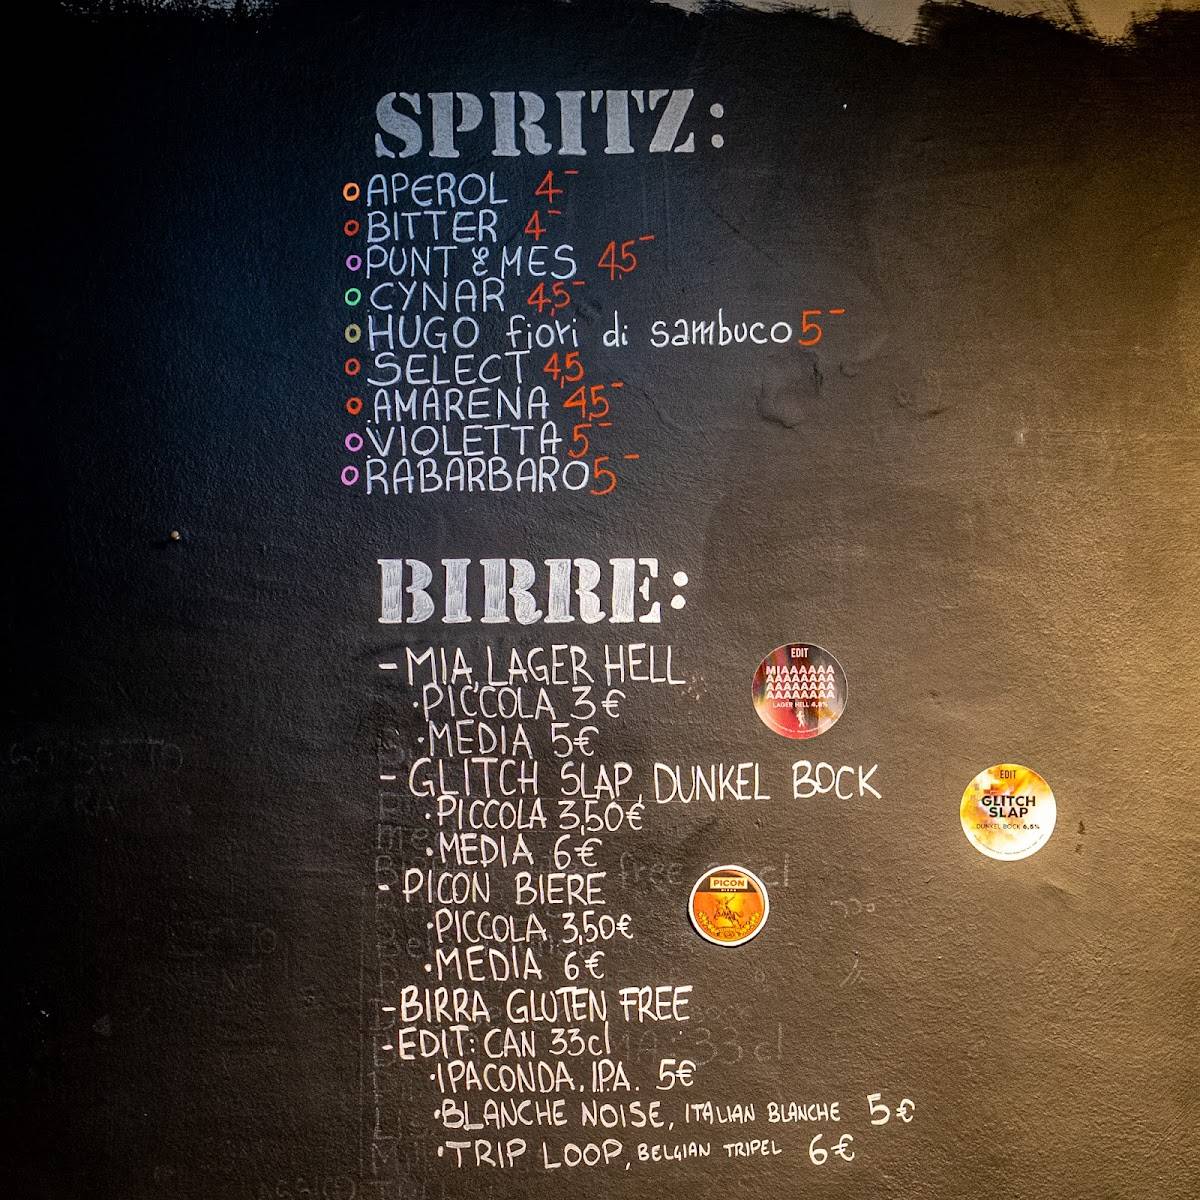 SPRITZ:
APEROL 4-
BITTER 4-
PUNT & MES 4,5-
CYNAR 4,5-
HUGO fiori di sambuco 5-
SELECT 4,5
AMARENA 4,5-
VIOLETTA 5-
RABARBARO 5-
BIRRE:
- MIA, LAGER HELL
· PICCOLA 3€
· MEDIA 5€
EDIT
MIAAAAAA
AAAAAAAA
AAAAAAAA
AAAAAAAA
LAGER HELL 4,8%
- GLITCH SLAP, DUNKEL BOCK
· PICCOLA 3,50€
· MEDIA 6€
EDIT
GLITCH
SLAP
DUNKEL BOCK 6,5%
- PICON BIERE
· PICCOLA 3,50€
· MEDIA 6€
PICON
- BIRRA GLUTEN FREE
- EDIT: CAN 33cl
· IPACONDA, I.P.A. 5€
· BLANCHE NOISE, ITALIAN BLANCHE 5€
· TRIP LOOP, BELGIAN TRIPEL 6€